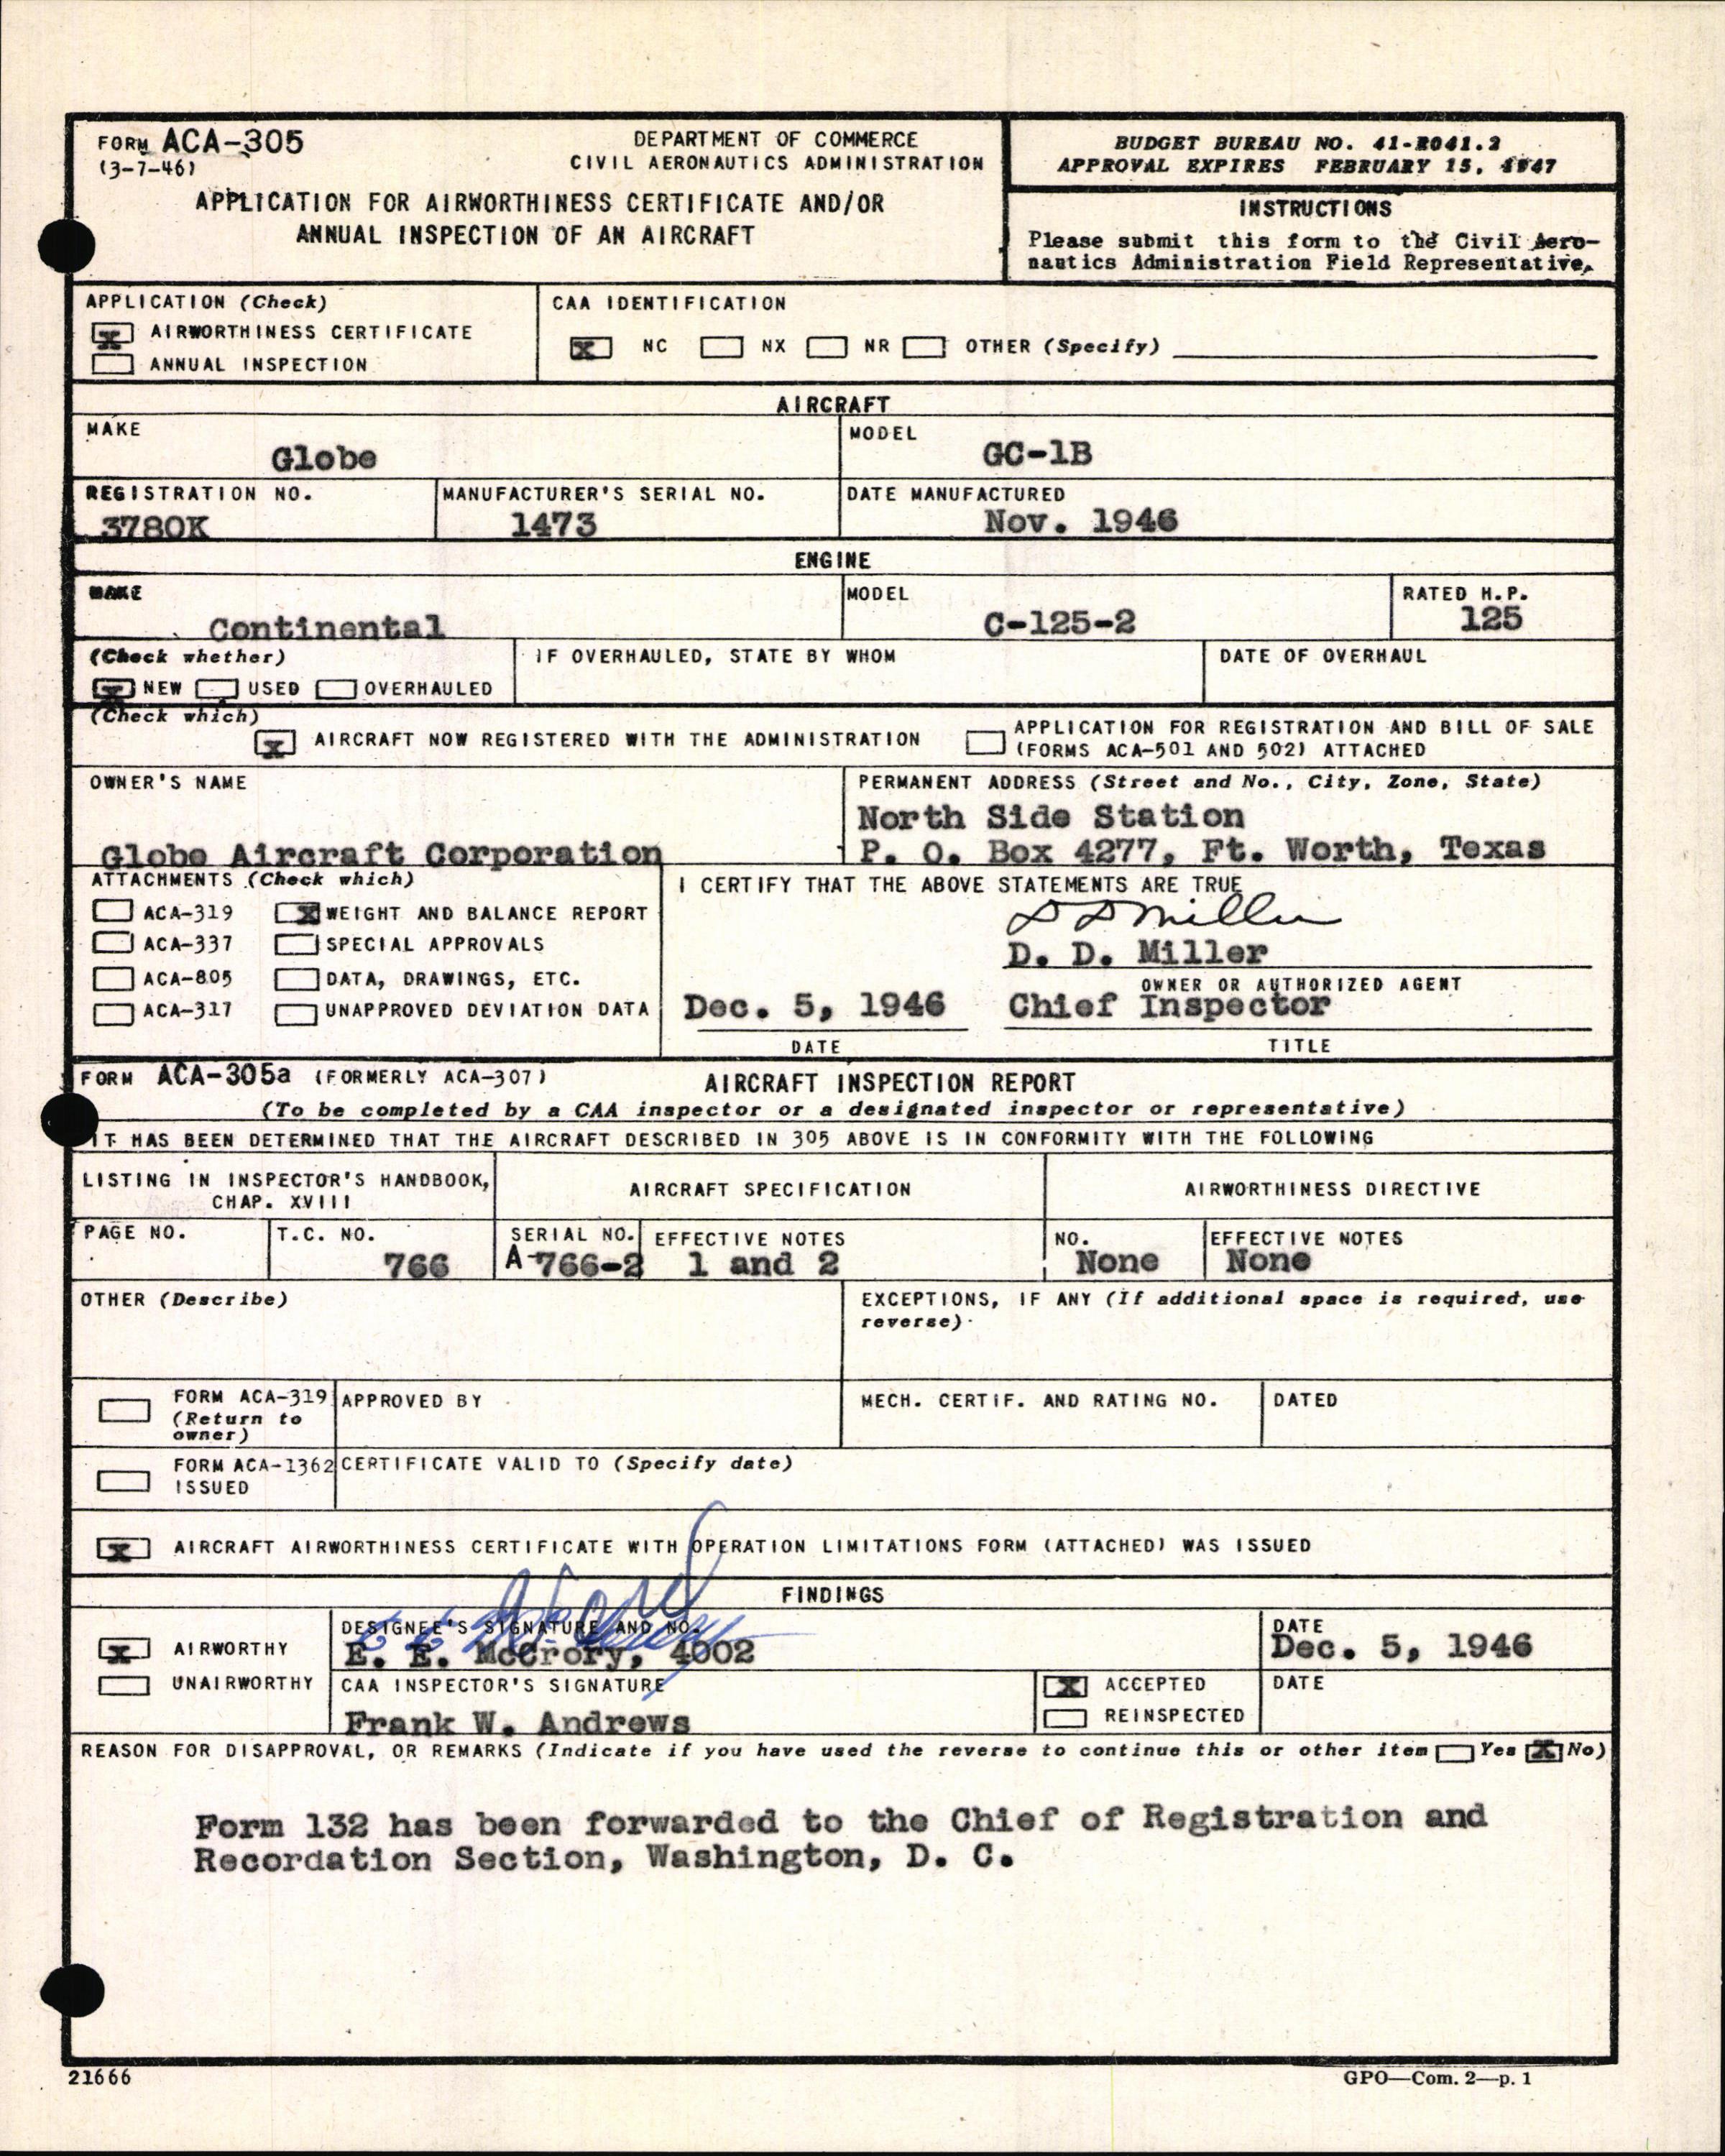 FORM ACA-305
(3-7-46)
DEPARTMENT OF COMMERCE
CIVIL AERONAUTICS ADMINISTRATION
APPLICATION FOR AIRWORTHINESS CERTIFICATE AND/OR
ANNUAL INSPECTION OF AN AIRCRAFT
BUDGET BUREAU NO. 41-R041.2
APPROVAL EXPIRES FEBRUARY 15, 1947
INSTRUCTIONS
Please submit this form to the Civil Aero-
nautics Administration Field Representative.
APPLICATION (Check)
X AIRWORTHINESS CERTIFICATE
ANNUAL INSPECTION
CAA IDENTIFICATION
X NC NX NR OTHER (Specify)
AIRCRAFT
MAKE
Globe
MODEL
GC-1B
REGISTRATION NO.
3780K
MANUFACTURER'S SERIAL NO.
1473
DATE MANUFACTURED
Nov. 1946
ENGINE
MAKE
Continental
MODEL
C-125-2
RATED H.P.
125
(Check whether)
X NEW USED OVERHAULED
IF OVERHAULED, STATE BY WHOM
DATE OF OVERHAUL
(Check which)
X AIRCRAFT NOW REGISTERED WITH THE ADMINISTRATION
APPLICATION FOR REGISTRATION AND BILL OF SALE
(FORMS ACA-501 AND 502) ATTACHED
OWNER'S NAME
Globe Aircraft Corporation
PERMANENT ADDRESS (Street and No., City, Zone, State)
North Side Station
P. O. Box 4277, Ft. Worth, Texas
ATTACHMENTS (Check which)
ACA-319 X WEIGHT AND BALANCE REPORT
ACA-337 SPECIAL APPROVALS
ACA-805 DATA, DRAWINGS, ETC.
ACA-317 UNAPPROVED DEVIATION DATA
I CERTIFY THAT THE ABOVE STATEMENTS ARE TRUE
D D Miller
D. D. Miller
OWNER OR AUTHORIZED AGENT
Dec. 5, 1946 Chief Inspector
DATE TITLE
FORM ACA-305a (FORMERLY ACA-307) AIRCRAFT INSPECTION REPORT
(To be completed by a CAA inspector or a designated inspector or representative)
IT HAS BEEN DETERMINED THAT THE AIRCRAFT DESCRIBED IN 305 ABOVE IS IN CONFORMITY WITH THE FOLLOWING
LISTING IN INSPECTOR'S HANDBOOK,
CHAP. XVIII
AIRCRAFT SPECIFICATION
AIRWORTHINESS DIRECTIVE
PAGE NO.
T.C. NO.
766
SERIAL NO.
A-766-2
EFFECTIVE NOTES
1 and 2
NO.
None
EFFECTIVE NOTES
None
OTHER (Describe)
EXCEPTIONS, IF ANY (If additional space is required, use
reverse)
FORM ACA-319
(Return to
owner)
APPROVED BY
MECH. CERTIF. AND RATING NO.
DATED
FORM ACA-1362
ISSUED
CERTIFICATE VALID TO (Specify date)
X AIRCRAFT AIRWORTHINESS CERTIFICATE WITH OPERATION LIMITATIONS FORM (ATTACHED) WAS ISSUED
FINDINGS
X AIRWORTHY
UNAIRWORTHY
DESIGNEE'S SIGNATURE AND NO.
E. E. McCrory, 4002
DATE
Dec. 5, 1946
CAA INSPECTOR'S SIGNATURE
Frank W. Andrews
X ACCEPTED
REINSPECTED
DATE
REASON FOR DISAPPROVAL, OR REMARKS (Indicate if you have used the reverse to continue this or other item Yes X No)
Form 132 has been forwarded to the Chief of Registration and
Recordation Section, Washington, D. C.
21666
GPO—Com. 2—p. 1